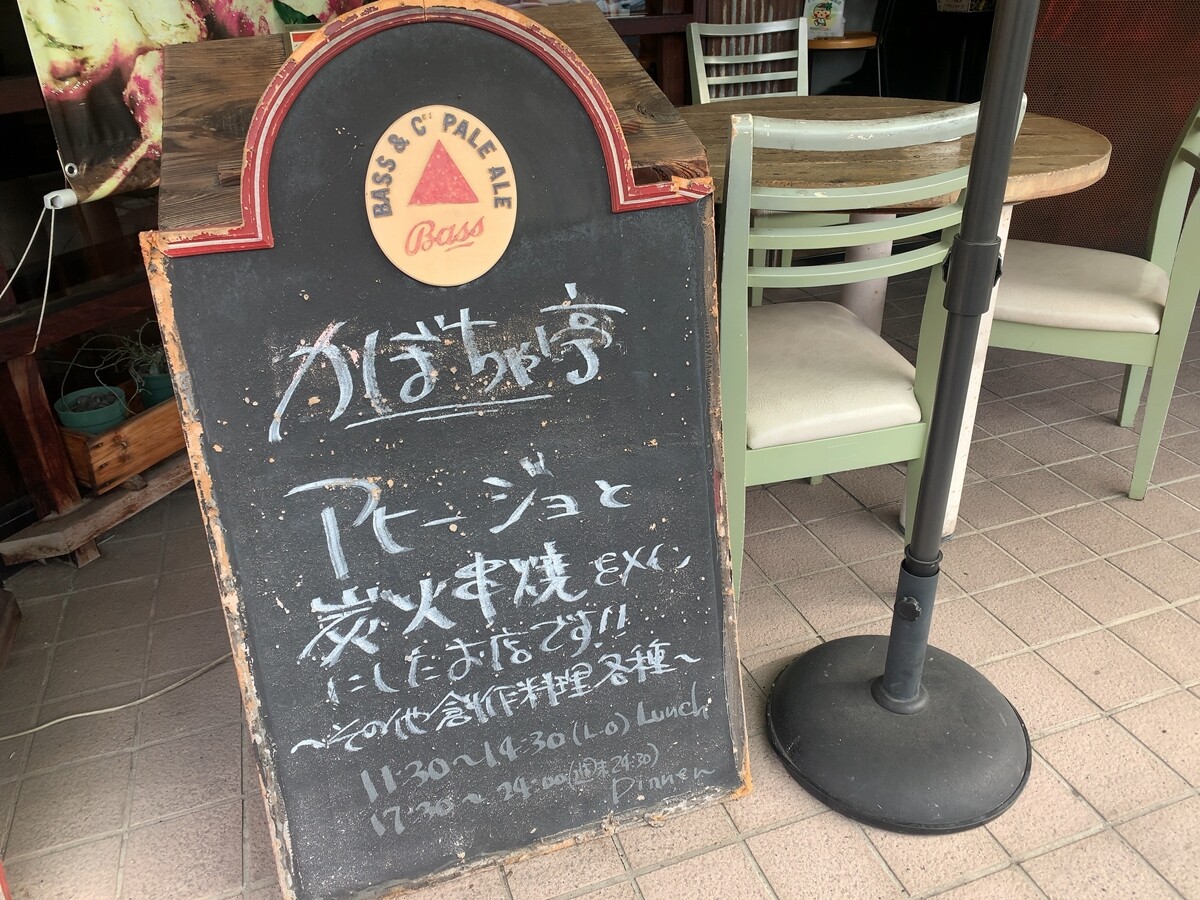 BASS & Co PALE ALE
Bass
かぼちゃ亭
アヒージョと
炭火串焼をメイン
にしたお店です!!
～その他創作料理各種～
11:30～14:30(L.O) Lunch
17:30～24:00(週末24:30)
Dinner